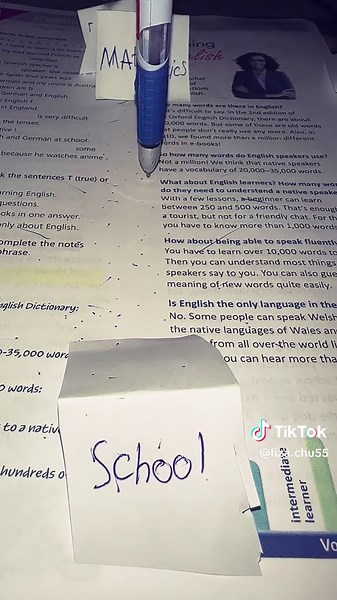 MAT
ics
ning
English
words are there in English?
difficult to say. In the 2nd edition of
Oxford English Dictionary, there are about
0,000 words. But some of these are old words
at people don't really use any more. Also, in
we found more than a million different
words in e-books!
how many words do English speakers use?
Not a million! We think that native speakers
have a vocabulary of 20,000–35,000 words.
What about English learners? How many wor
do they need to understand a native speake
With a few lessons, a beginner can learn
between 250 and 500 words. That's enoug
a tourist, but not for a friendly chat. For th
you have to know more than 1,000 words
How about being able to speak fluently
You have to learn over 10,000 words to
Then you can understand most things
speakers say to you. You can also gue
meaning of new words quite easily.
Is English the only language in the
No. Some people can speak Welsh
the native languages of Wales an
from all over the world li
ou can hear more tha
German and English
English f
in England
is very difficult
the tenses.
and German at school.
some
because he watches anime
k the sentences T (true) or
rning English.
questions.
oks in one answer.
only about English.
omplete the notes
phrase.
nglish Dictionary:
0-35,000 word
0 words:
to a nativ
hundreds o
School
TikTok
intermediate
learner
Vo